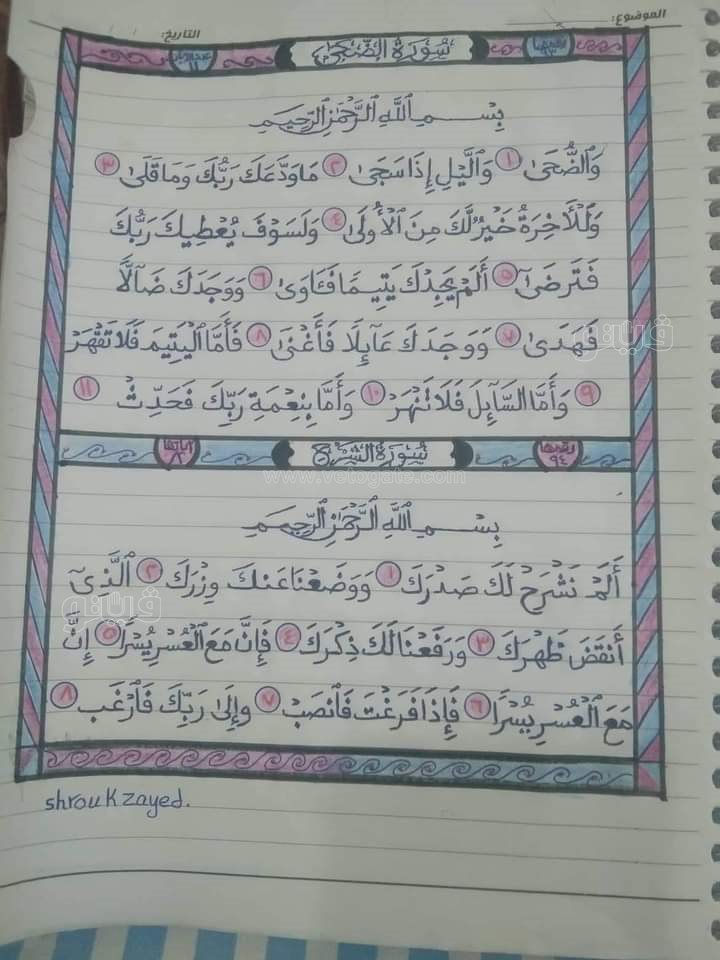 الموضوع:
التاريخ:
رقمها ٩٣
سُورَةُ الضُّحَىٰ
١١
بِسْمِ اللَّهِ الرَّحْمَٰنِ الرَّحِيمِ
وَالضُّحَىٰ ١ وَالَّيْلِ إِذَا سَجَىٰ ٢ مَا وَدَّعَكَ رَبُّكَ وَمَا قَلَىٰ ٣
وَلَلْأَخِرَةُ خَيْرٌ لَّكَ مِنَ الْأُولَىٰ ٤ وَلَسَوْفَ يُعْطِيكَ رَبُّكَ
فَتَرْضَىٰٓ ٥ أَلَمْ يَجِدْكَ يَتِيمًا فَـَٔاوَىٰ ٦ وَوَجَدَكَ ضَآلًّا
فَهَدَىٰ ٧ وَوَجَدَكَ عَآئِلًا فَأَغْنَىٰ ٨ فَأَمَّا الْيَتِيمَ فَلَا تَقْهَرْ
٩ وَأَمَّا السَّآئِلَ فَلَا تَنْهَرْ ١٠ وَأَمَّا بِنِعْمَةِ رَبِّكَ فَحَدِّثْ ١١
رقمها ٩٤
سُورَةُ الشَّرْحِ
آياتها ٨
www.vetogate.com
بِسْمِ اللَّهِ الرَّحْمَٰنِ الرَّحِيمِ
أَلَمْ نَشْرَحْ لَكَ صَدْرَكَ ١ وَوَضَعْنَا عَنكَ وِزْرَكَ ٢ الَّذِىٓ
أَنقَضَ ظَهْرَكَ ٣ وَرَفَعْنَا لَكَ ذِكْرَكَ ٤ فَإِنَّ مَعَ الْعُسْرِ يُسْرًا ٥ إِنَّ
مَعَ الْعُسْرِ يُسْرًا ٦ فَإِذَا فَرَغْتَ فَانصَبْ ٧ وَإِلَىٰ رَبِّكَ فَارْغَب ٨
shrouk zayed.